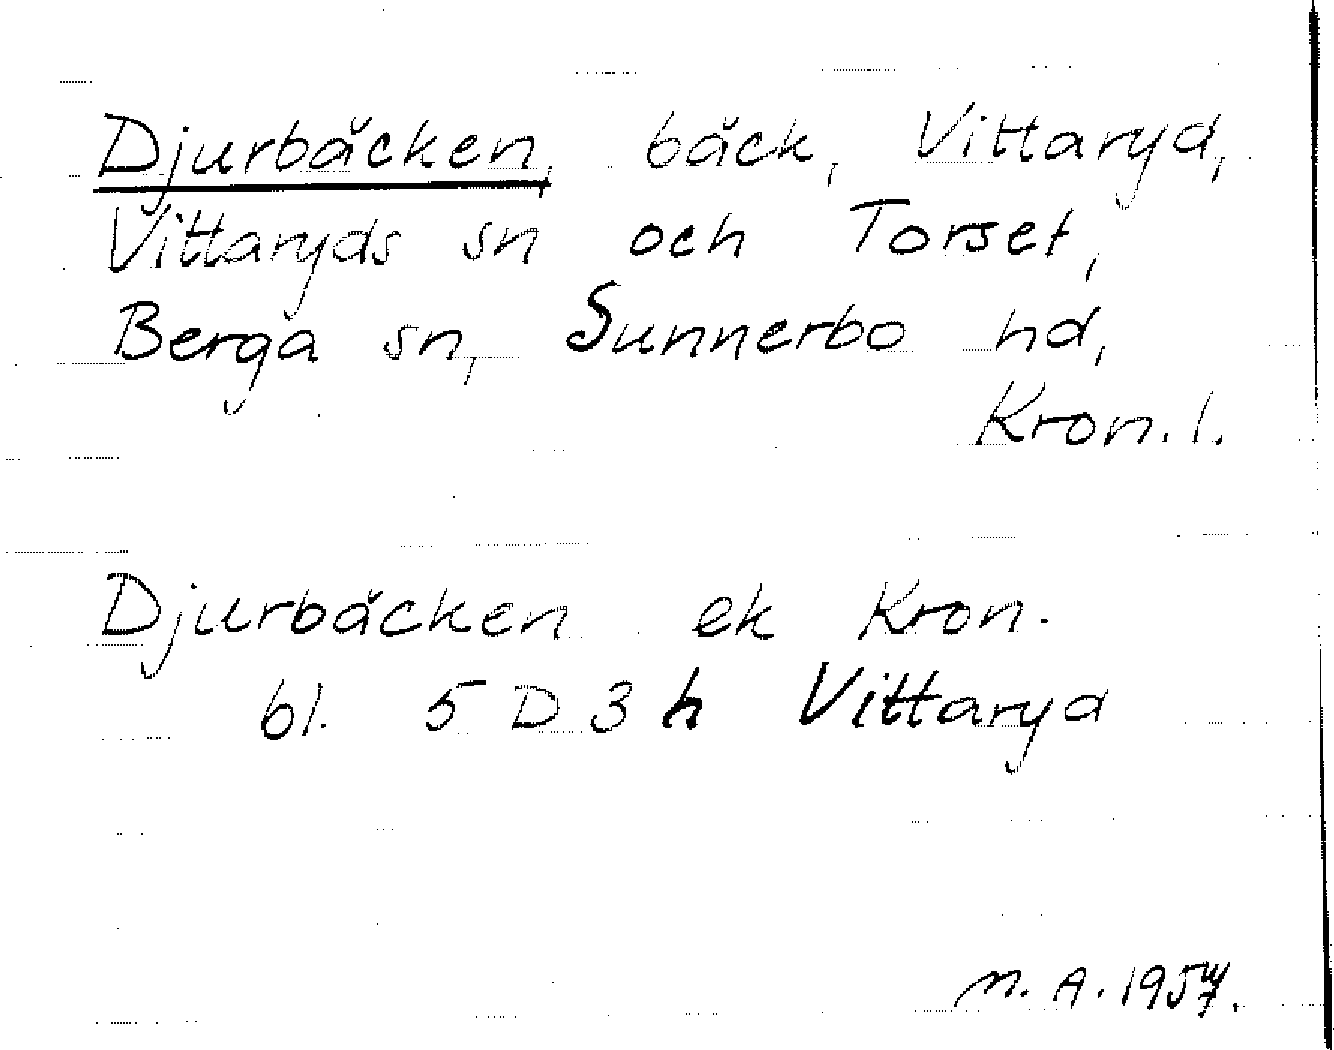 Djurbäcken, bäck, Vittaryd,
Vittaryds sn och Torset,
Berga sn, Sunnerbo hd,
Kron. l.
Djurbäcken ek Kron.
bl. 5 D 3 h Vittaryd
M. A.